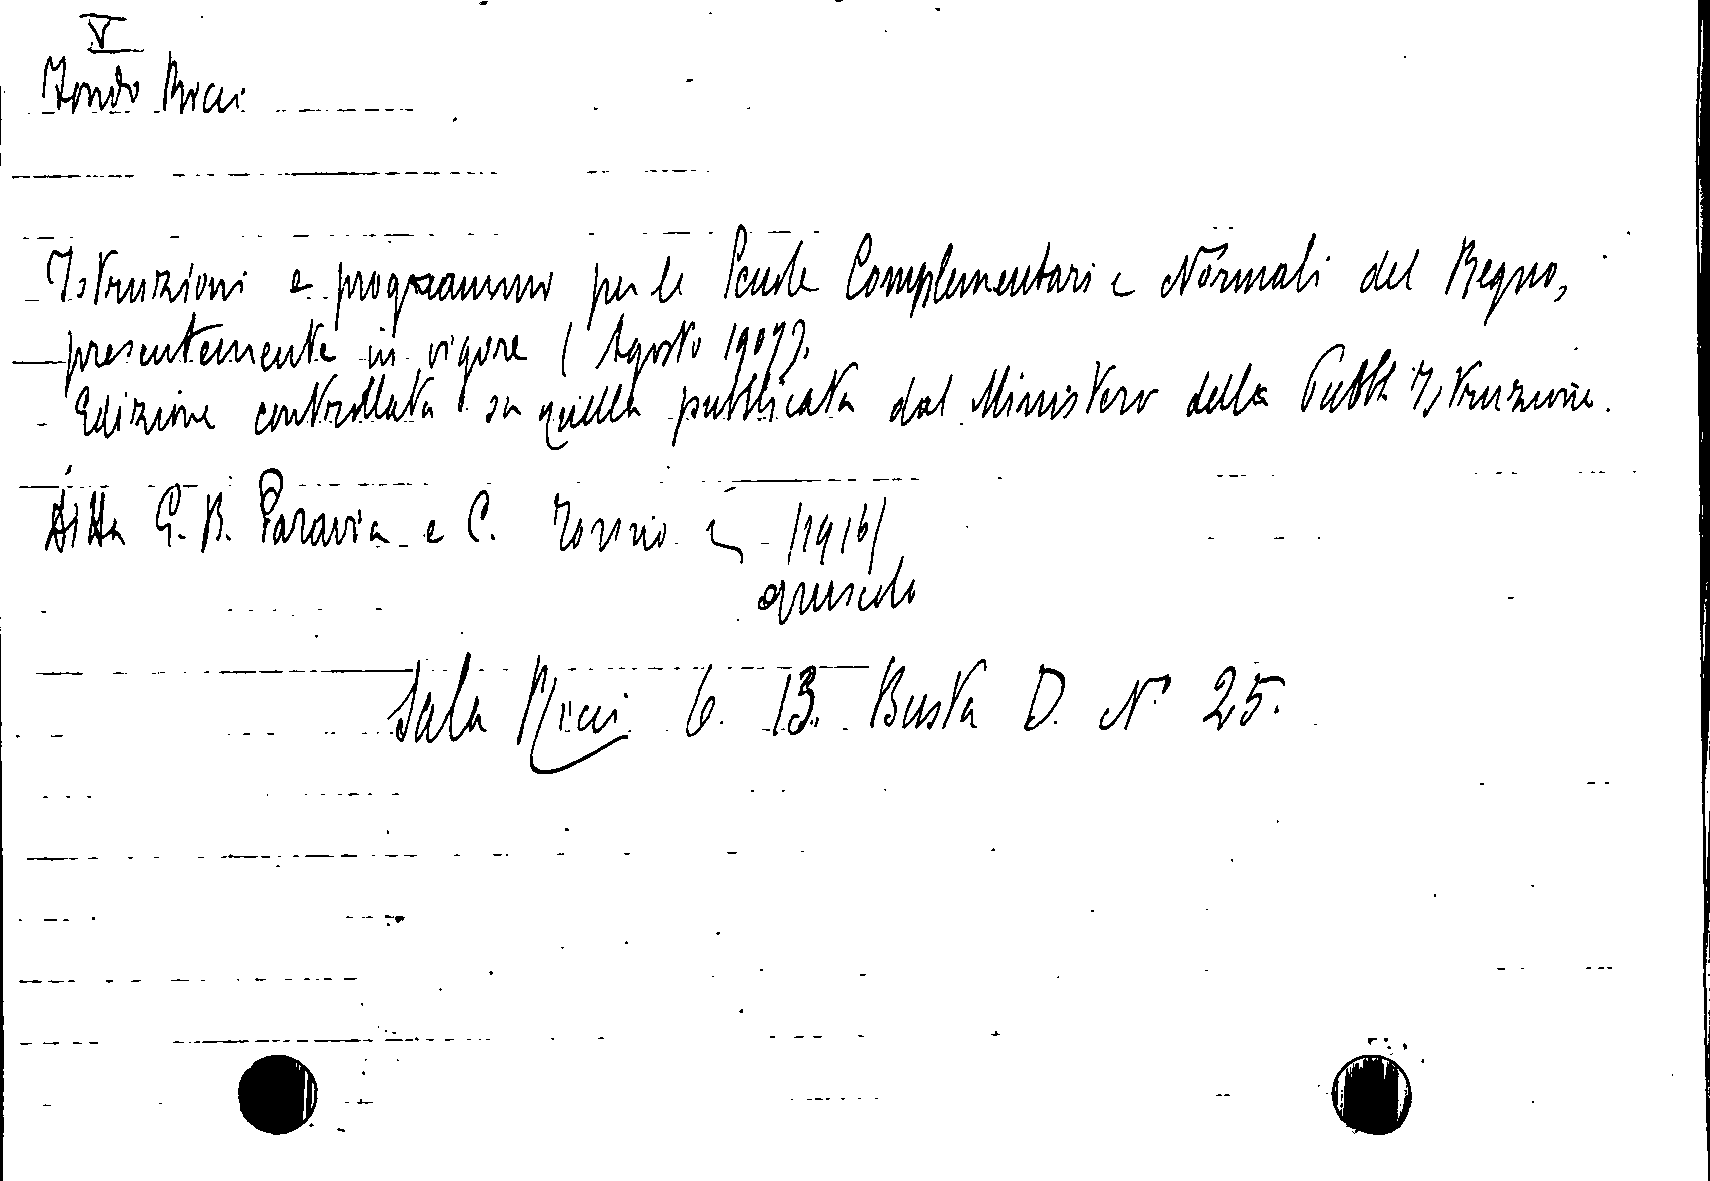 V
Fondo Ricci
Istruzioni e programmi per le Scuole Complementari e Normali del Regno,
presentemente in vigore (Agosto 1907).
Edizione controllata su quella pubblicata dal Ministero della Pubbl Istruzione.
Ditta G. B. Paravia e C. Torino /1916/
opuscolo
Sala Ricci 6. 13. Busta D. N° 25.